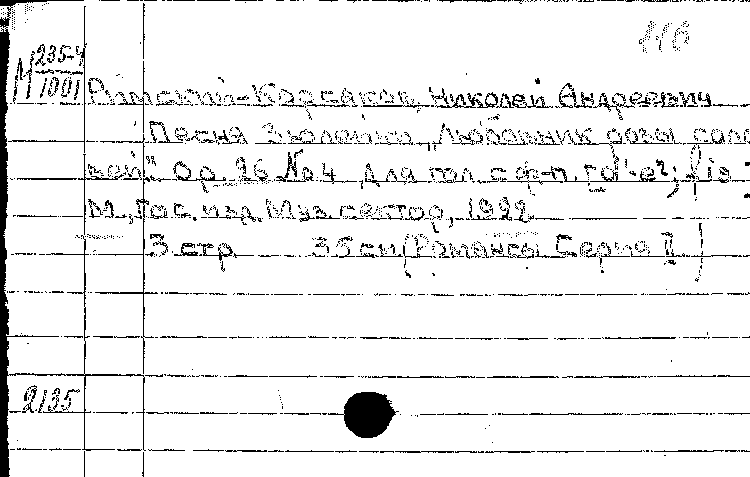 116
М 235-4
1001
Римский-Корсаков, Николай Андреевич
Песня Зюлейки „Любовник розы соло
вей". Op. 26 No 4, для гол. с ф-п.
М., Гос. изд. Муз. сектор, 1922
3 стр. 35 см. (Романсы Серия II)
2135